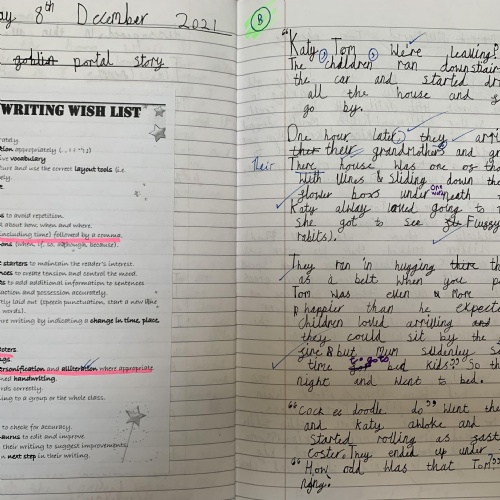 ay 8th December 2021
goblin portal story
WRITING WISH LIST
rately.
tion appropriately
ive vocabulary
ture and use the correct layout tools (i.e.
ely.
s to avoid repetition.
l about how, when and where.
(including time) followed by a comma.
ons (when, if, so, although, because).
e starters to maintain the reader's interest.
nces to create tension and control the mood.
es to add additional information to sentences
uction and possession accurately.
tly laid out (speech punctuation, start a new line
words).
ure writing by indicating a change in time, place
acters.
gs
ersonification and alliteration where appropriate
ned handwriting.
ords correctly.
ning to a group or the whole class.
to check for accuracy.
aurus to edit and improve
their writing to suggest improvements.
n next step in their writing.
B
"Katy, Tom, We're leaving?
The children ran downstair
the car and started dr
all the house and
go by.
One hour later, they arri
their grandmothers and gr
Their
There house was one of tho
with vines & sliding down th
flower boxs under neath
one way
Katy alway loved going to
she got to see Fluggy
rabits).
They ran in hugging there th
as a belt when you p
Tom was ellen & more
happier than he expecte
children loved arriving and
they could sit by the
fire & but Mum suddenley sa
time to go to bed kids?? So th
night and went to bed.
"Cock ee doodle do" Went the
and Katy awoke and
started rolling as fast
coster. They ended up under
"How odd was that Tom??